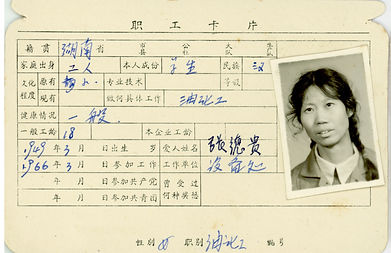 职工卡片
籍贯 湖南 省 市县 公社 大队 生产队
家庭出身 工人 本人成份 学生 民族 汉
文化程度 原有 初小 专业技术 等级
现有 做何具体工作 油化工
健康情况 一般
一般工龄 18 本企业工龄
1949 年 3 月 日出生 岁 爱人姓名 张德贵
1966 年 3 月 日参加工作 工作单位 设备处
年 月 日参加共产党 曾受过何种奖惩
年 月 日参加共青团
性别 女 职别 油化工 编号